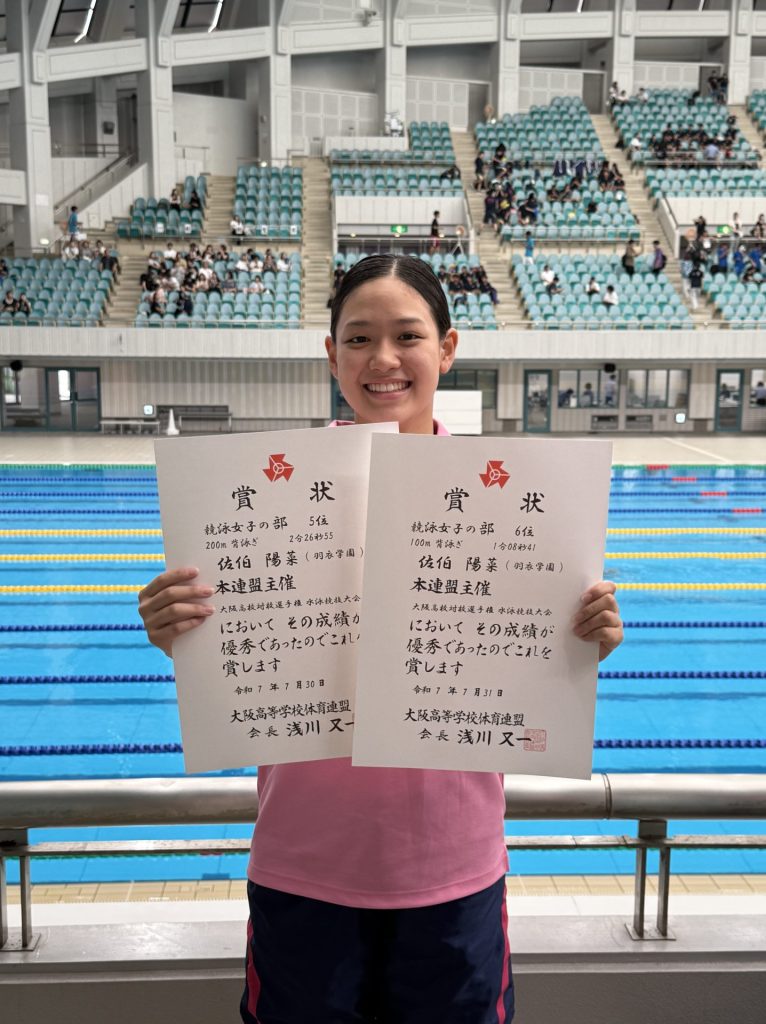 賞 状
競泳女子の部 5位
200m 背泳ぎ 2分26秒55
佐伯 陽菜 (羽衣学園)
本連盟主催
大阪高校対校選手権 水泳競技大会
において その成績が
優秀であったのでこれを
賞します
令和 7 年 7 月 30 日
大阪高等学校体育連盟
会長 浅川 又一
賞 状
競泳女子の部 6位
100m 背泳ぎ 1分08秒41
佐伯 陽菜 (羽衣学園)
本連盟主催
大阪高校対校選手権 水泳競技大会
において その成績が
優秀であったのでこれを
賞します
令和 7 年 7 月 31 日
大阪高等学校体育連盟
会長 浅川 又一